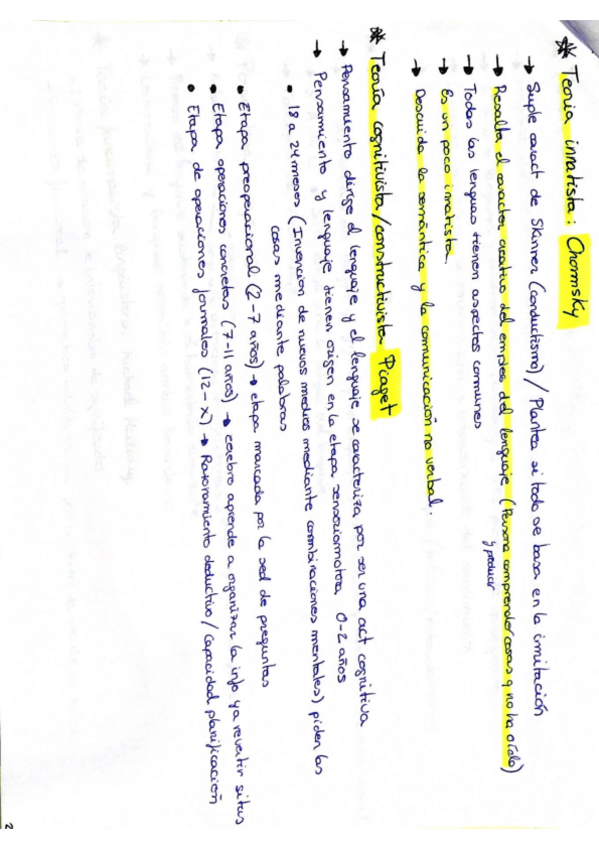 * Teoria innatista: Chomsky
→ Suple caract de Skinner (conductismo) / Plantea si todo se basa en la imitación
→ Resalta el caracter creativo del empleo del lenguaje (Persona comprender cosas q no ha oído)
y producir
→ Todas las lenguas tienen aspectos comunes
→ Es un poco innatista.
→ Descuida la semántica y la comunicación no verbal.
* Teoría cognitivista/constructivista Piaget
→ Pensamiento dirige el lenguaje y el lenguaje se caracteriza por ser una act cognitiva
→ Pensamiento y lenguaje tienen origen en la etapa sensoriomotora 0-2 años
• 18 a 24 meses (Invención de nuevos medios mediante combinaciones mentales) piden las
cosas mediante palabras
• Etapa preoperacional (2-7 años) → etapa marcada por la sed de preguntas
• Etapa operaciones concretas (7-11 años) → cerebro aprende a organizar la info ya revertir situs
• Etapa de operaciones formales (12-x) → Razonamiento deductivo / capacidad planificación
2